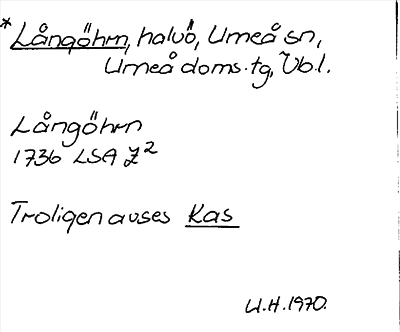 *Långöhrn, halvö, Umeå sn,
Umeå doms.tg, Vb.l.
Långöhrn
1736 LSA Z²
Troligen avses Kas
U.H. 1970.